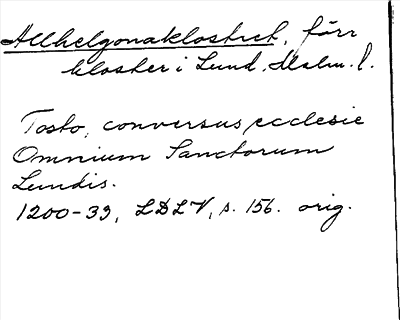 Allhelgonaklostret, förr
kloster i Lund. Malm. l.
Tosto, conversus ecclesie
Omnium Sanctorum
Lundis.
1200-33, LDLV, s. 156. orig.